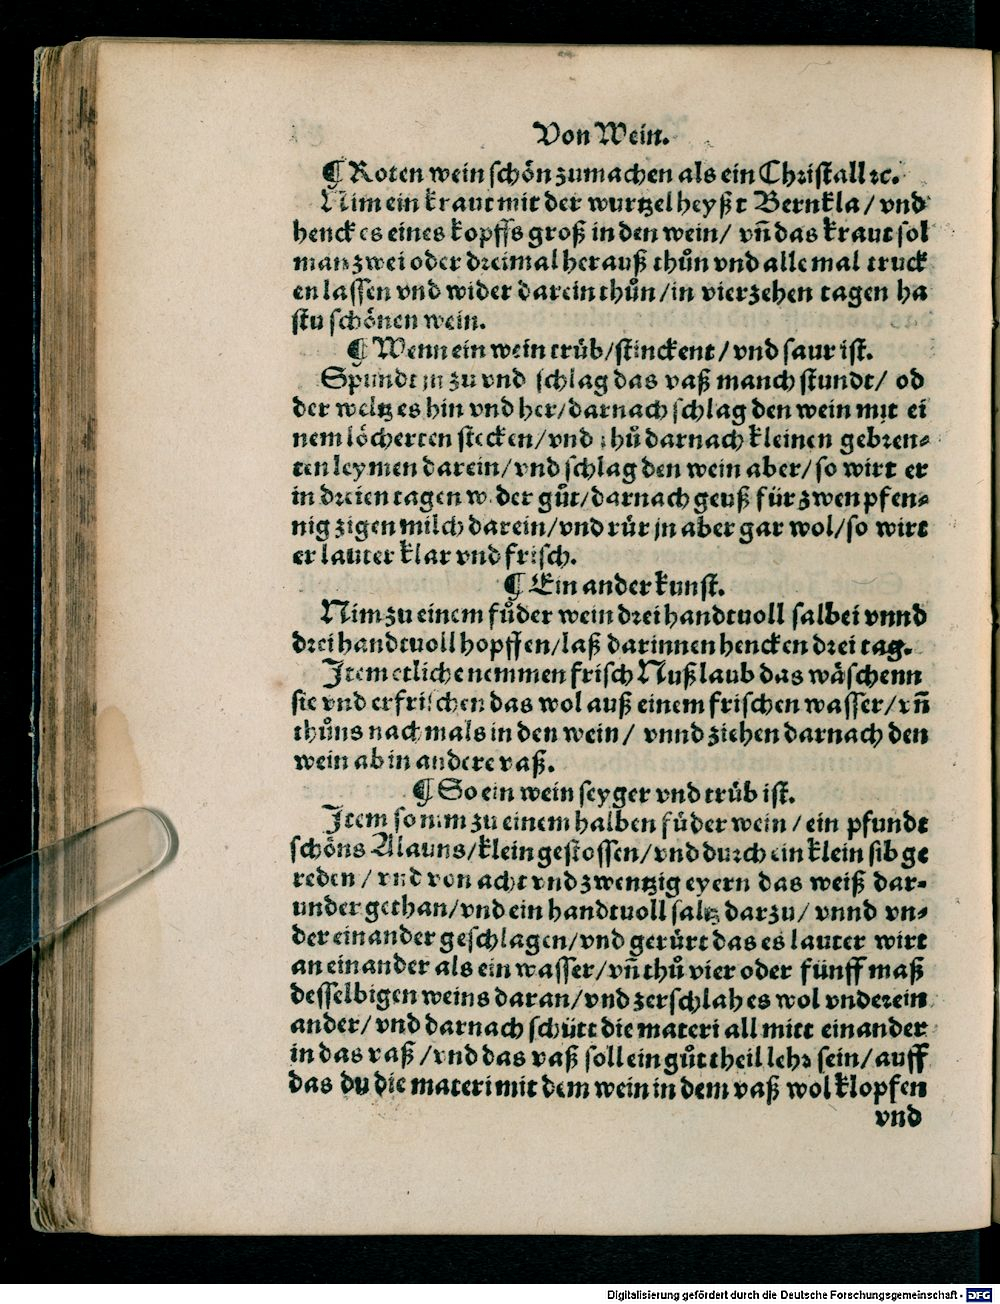 Von Wein.
¶ Roten wein schön zumachen als ein Christall ꝛc.
Nim ein kraut mit der wurtzel heyßt Bernkla / vnd
henck es eines kopffs groß in den wein / vñ das kraut sol
man zwei oder dreimal herauß thůn vnd alle mal truck
en lassen vnd wider darein thůn / in vierzehen tagen ha
stu schönen wein.
¶ Wenn ein wein trüb / stinckent / vnd saur ist.
Spundt jn zu vnd schlag das vaß manch stundt / od
der weltz es hin vnd her / darnach schlag den wein mit ei
nem löcherten stecken / vnd thů darnach kleinen gebren⸗
ten leymen darein / vnd schlag den wein aber / so wirt er
in dreien tagen wider gůt / darnach geuß für zwen pfen⸗
nig zigen milch darein / vnd rür jn aber gar wol / so wirt
er lauter klar vnd frisch.
¶ Ein ander kunst.
Nim zu einem fůder wein drei handtuoll salbei vnnd
drei handtuoll hopffen / laß darinnen hencken drei tag.
Item etliche nemmen frisch Nußlaub das wäschenn
sie vnd erfrischen das wol auß einem frischen wasser / vñ
thůns nachmals in den wein / vnnd ziehen darnach den
wein ab in andere vaß.
¶ So ein wein seyger vnd trüb ist.
Item so nim zu einem halben fůder wein / ein pfundt
schöns Alauns / klein gestossen / vnd durch ein klein sib ge
reden / vnd von acht vnd zwentzig eyern das weiß dar⸗
under gethan / vnd ein handtuoll saltz darzu / vnnd vn⸗
der einander geschlagen / vnd gerürt das es lauter wirt
an einander als ein wasser / vñ thů vier oder fünff maß
desselbigen weins daran / vnd zerschlah es wol vnderein
ander / vnd darnach schütt die materi all mitt einander
in das vaß / vnd das vaß soll ein gůt theil lehr sein / auff
das du die materi mit dem wein in dem vaß wol klopfen
vnd
Digitalisierung gefördert durch die Deutsche Forschungsgemeinschaft - DFG